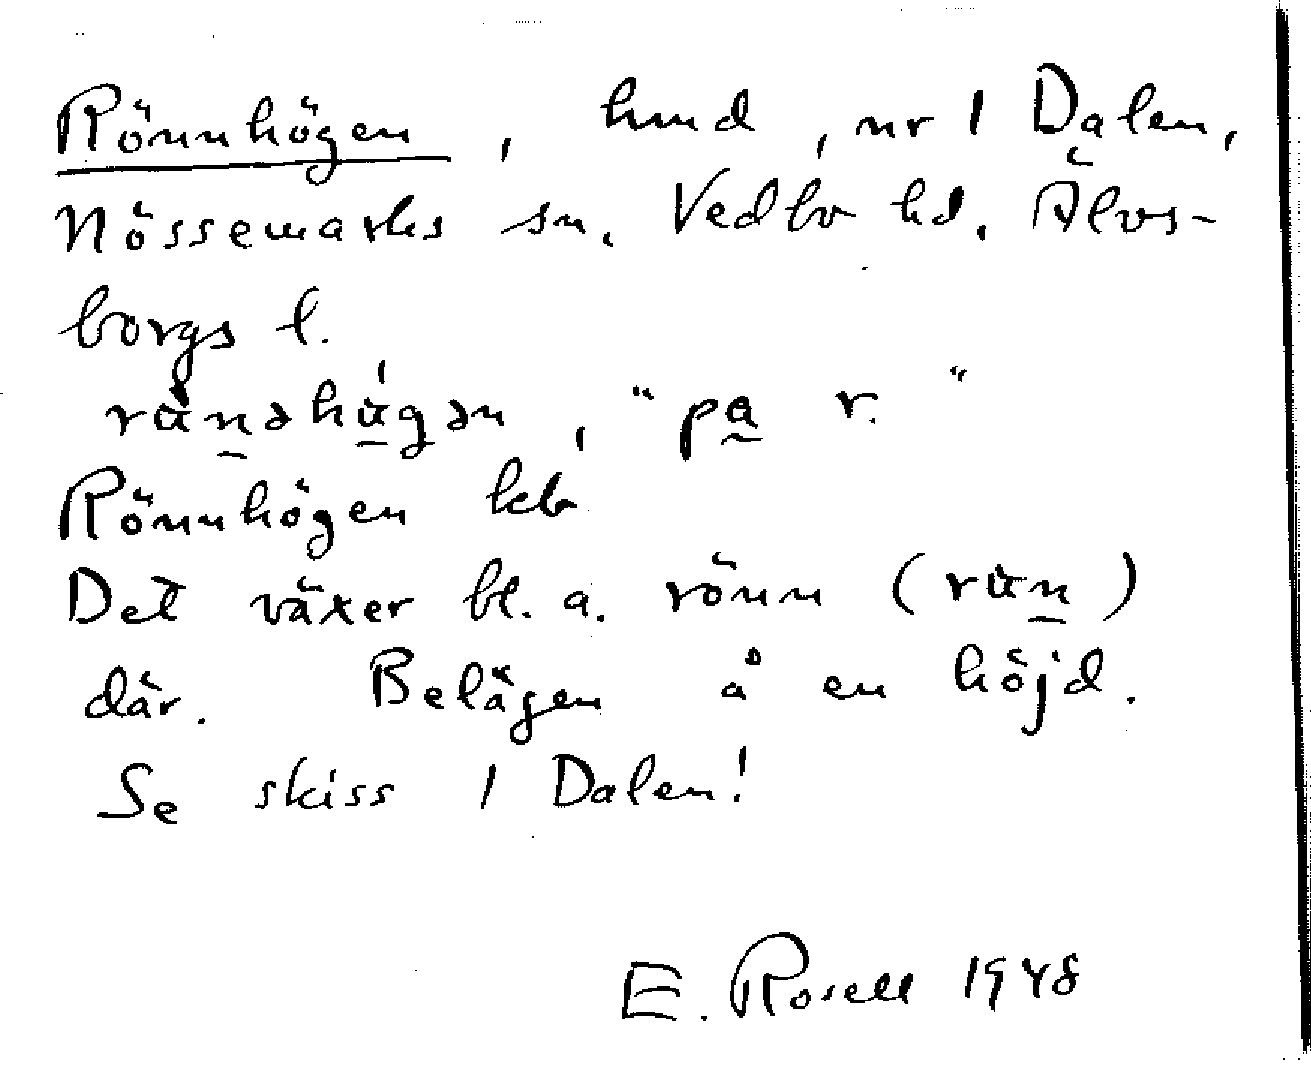 Rönnhögen, lund, nr 1 Dalen,
Nössemarks sn. Vedbo hd. Älvs-
borgs l.
"på r."
Rönnhögen
Det växer bl. a. rönn
där. Belägen å en höjd.
Se skiss 1 Dalen!
E. Rosell 1948